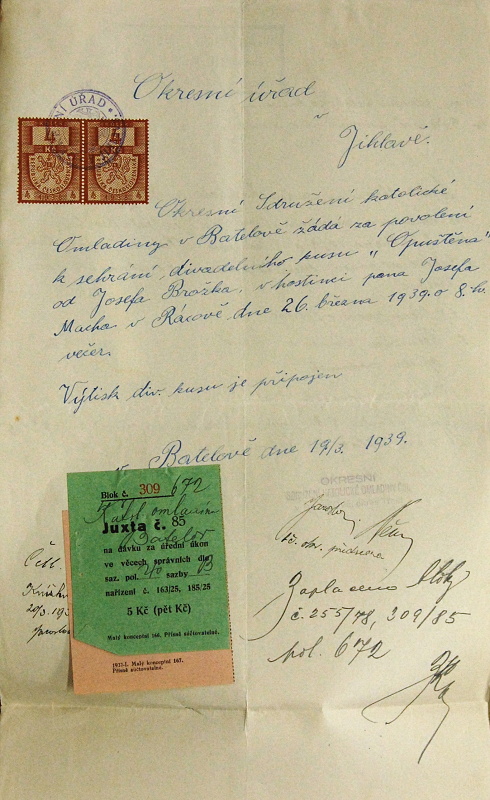 NÍ ÚŘAD
4 4
Kč Kč
Okresní úřad
v
Jihlavě.
Okresní Sdružení katolické
Omladiny v Batelově žádá za povolení
k sehrání divadelního kusu "Opuštěna"
od Josefa Brožka v hostinci pana Josefa
Macha v Rácově dne 26. března 1939 o 8. h.
večer.
Výtisk div. kusu je připojen
v Batelově dne 19/3. 1939.
OKRESNÍ
Blok č. 309 672
Katol. omladina
Batelov
Juxta č. 85
na dávku za úřední úkon
ve věcech správních dle
saz. pol. sazby B
nařízení č. 163/25, 185/25
5 Kč (pět Kč)
Malý konceptní 166. Přísně súčtovatelné.
1937-I. Malý konceptní 167.
Přísně súčtovatelné.
Zaplaceno
č. 255/78, 309/85
pol. 672